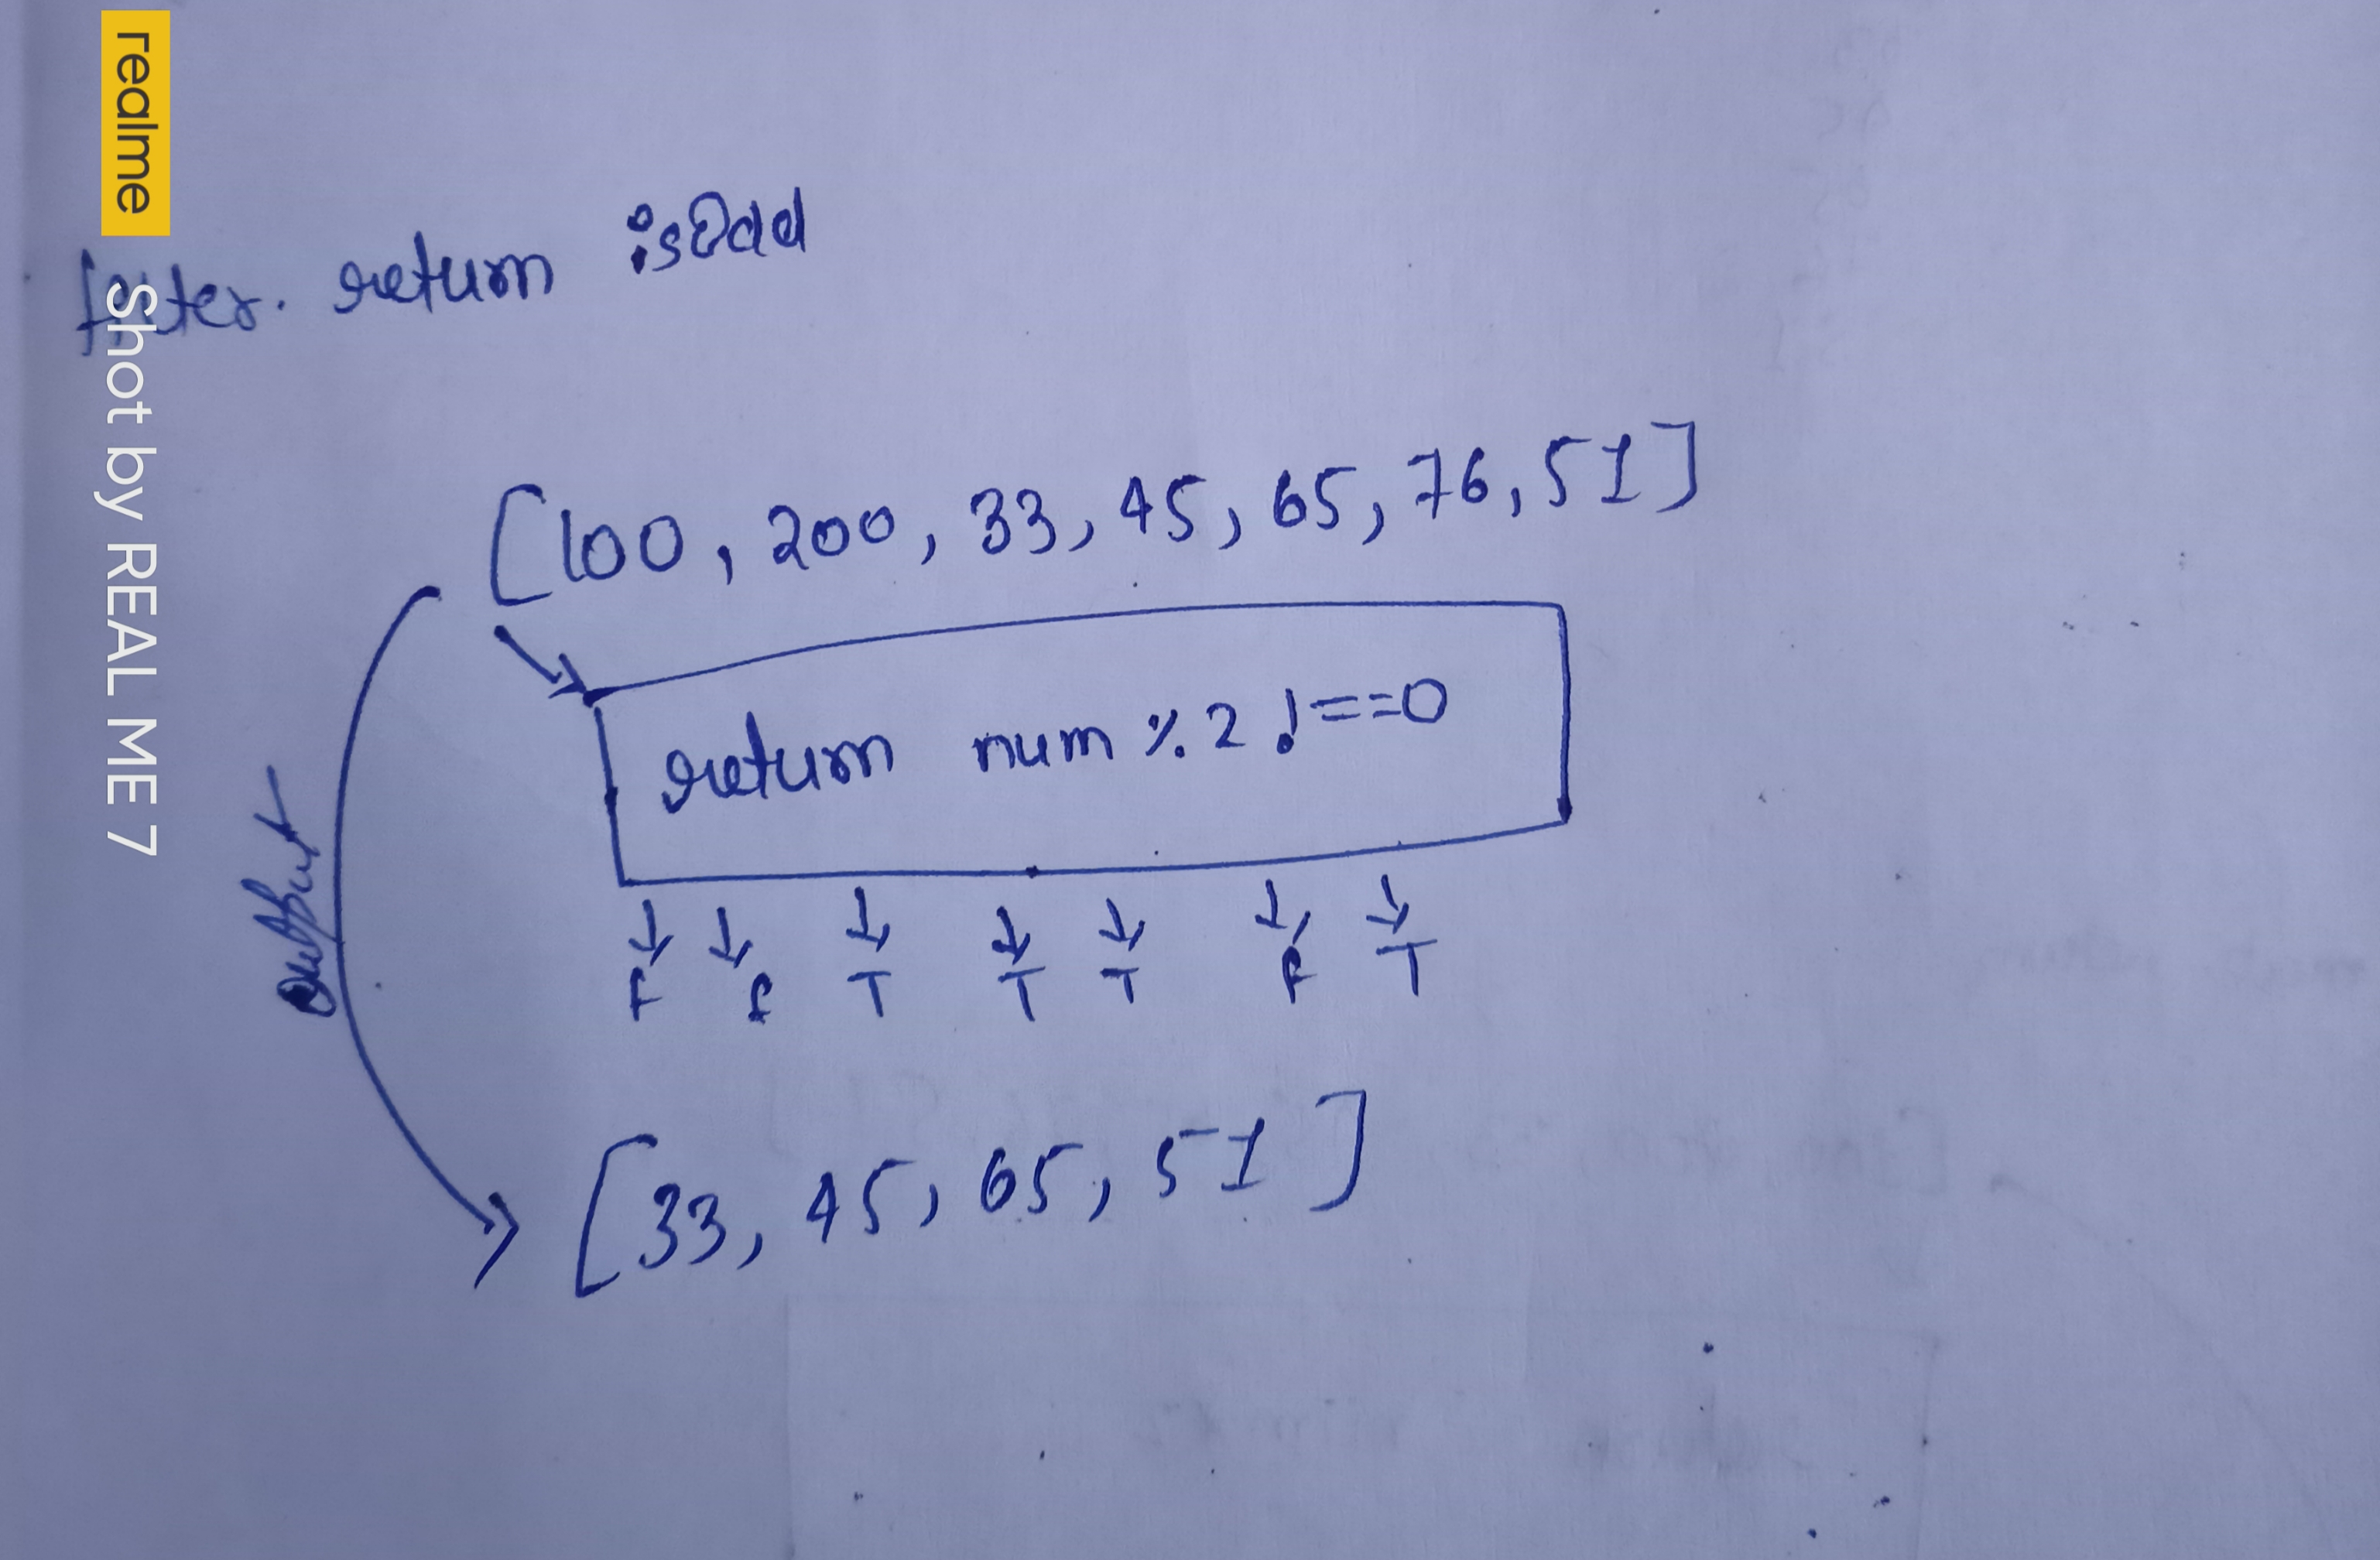 realme
Shot by REAL ME 7
filter. return isOdd
[100, 200, 33, 45, 65, 76, 51]
return num % 2 !==0
F F T T T F T
output
[33, 45, 65, 51]